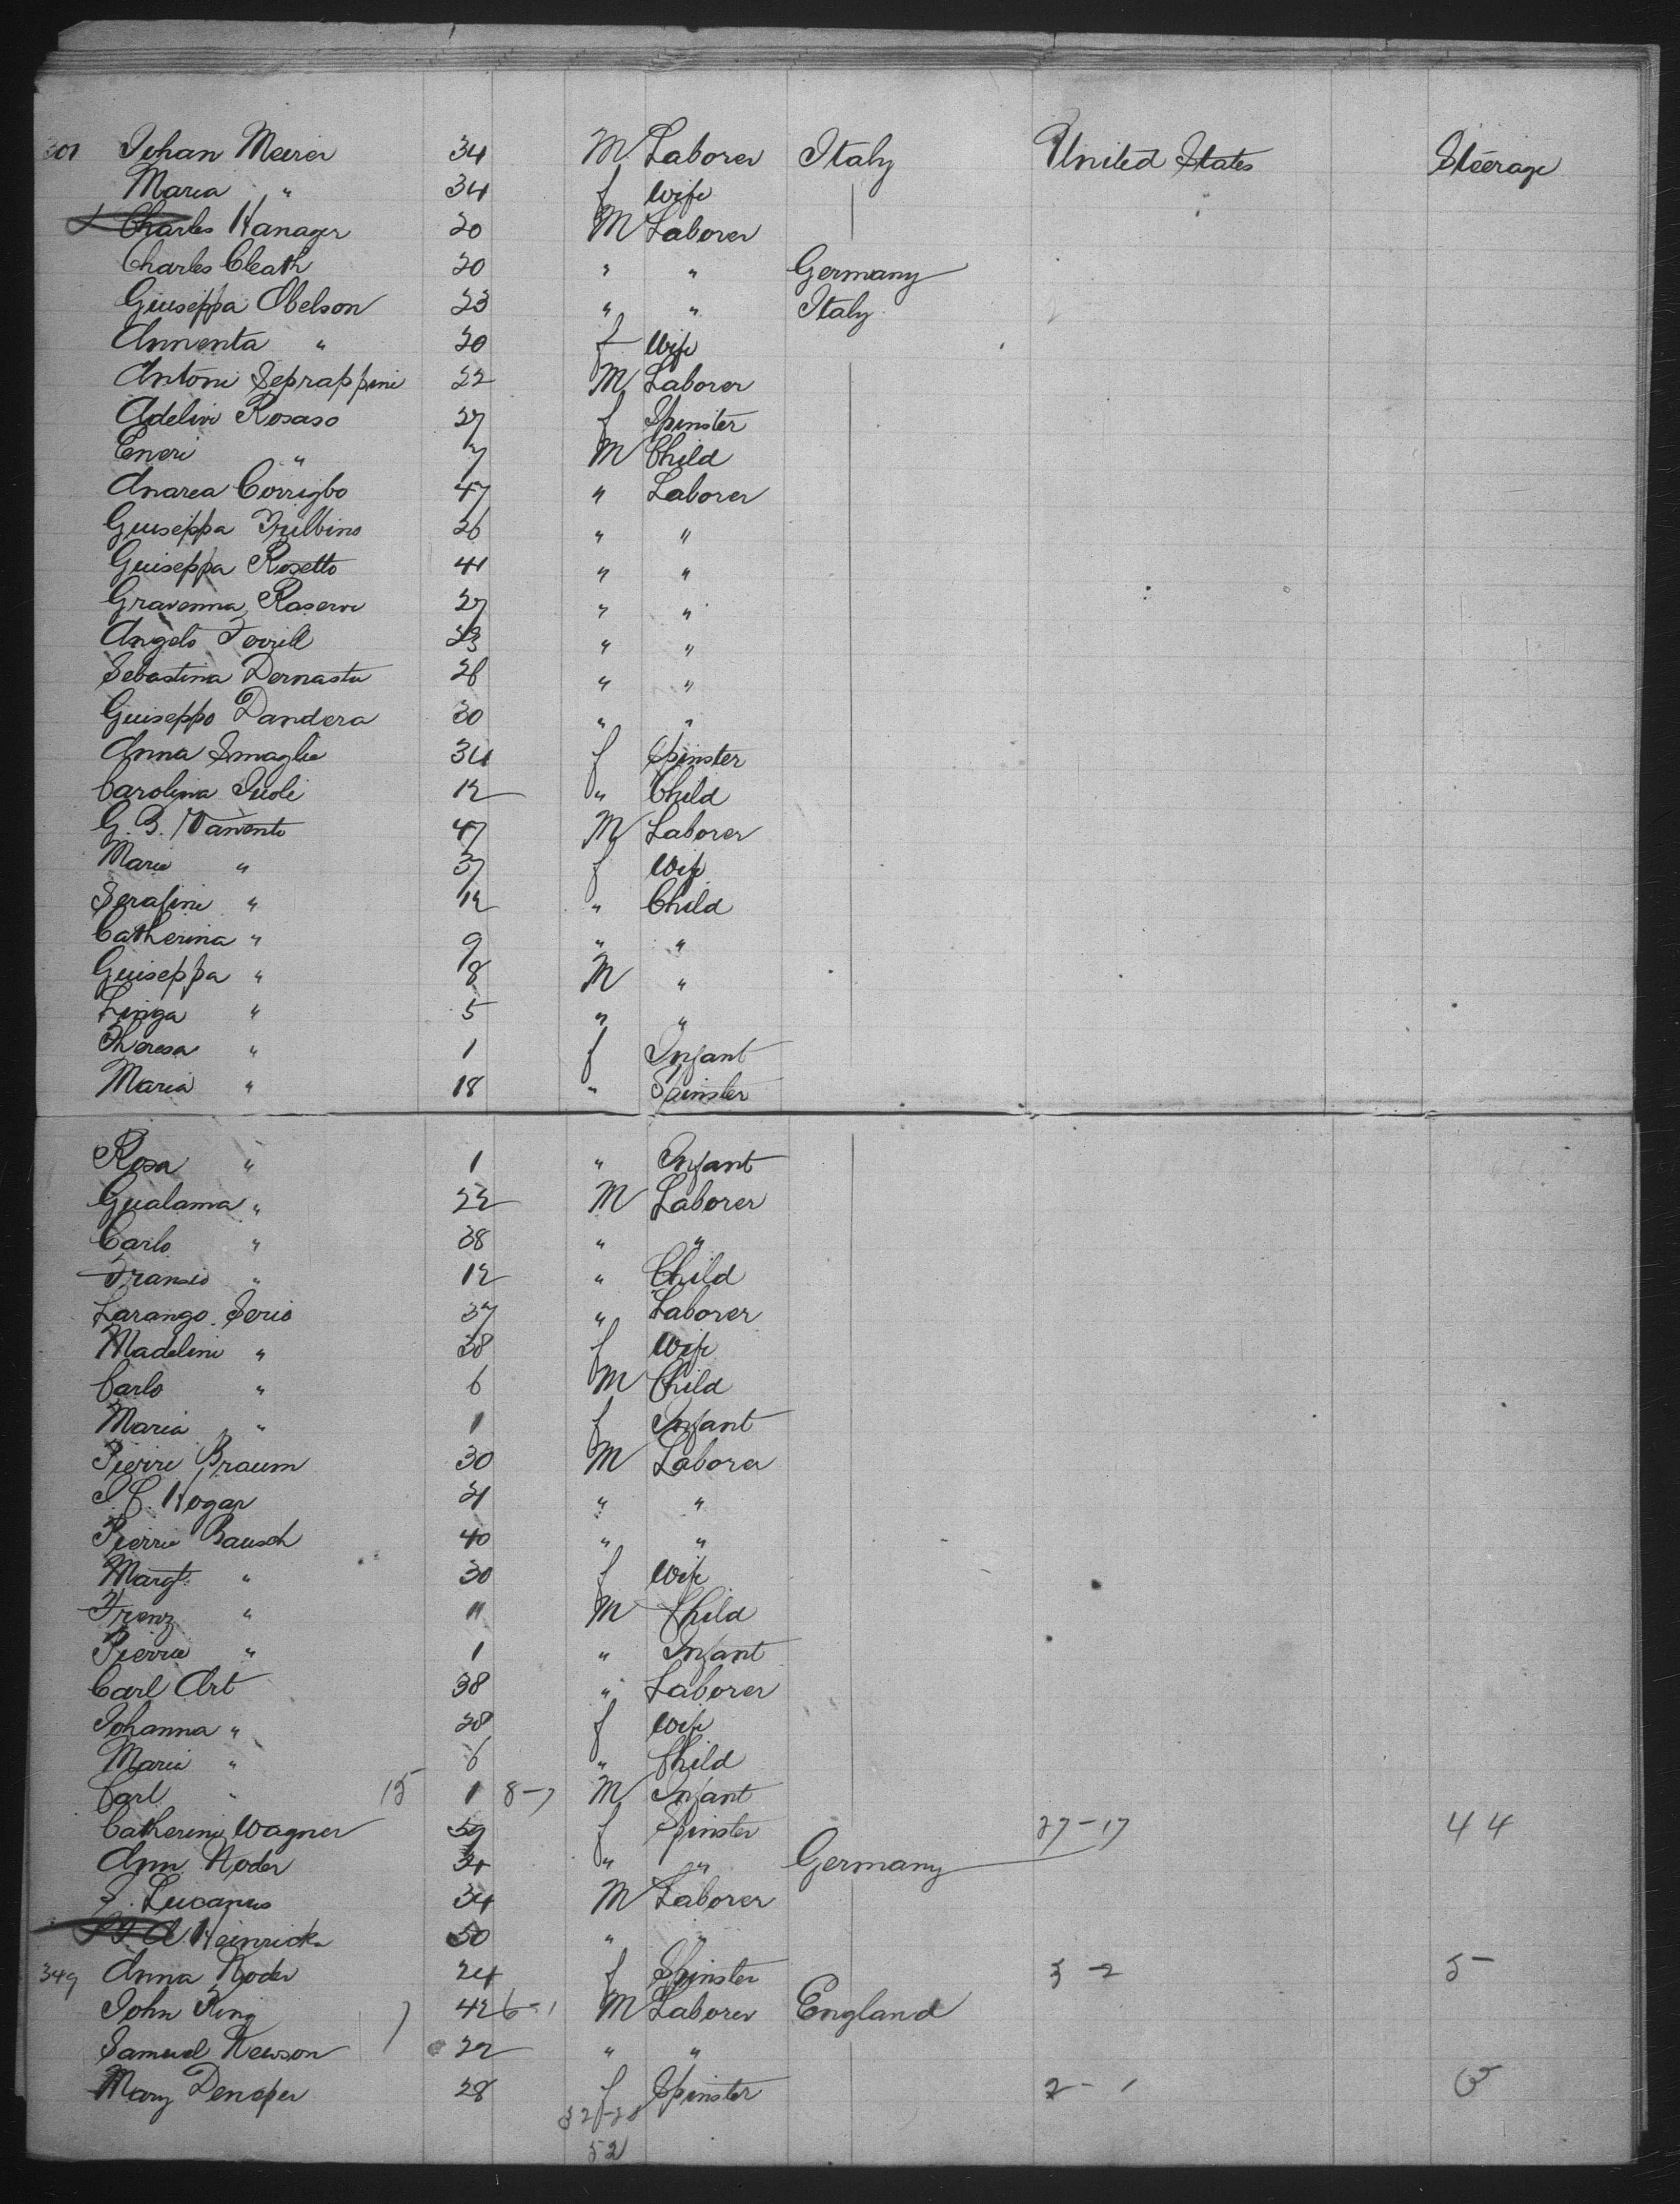 301 Johan Meirer 34 M Laborer Italy United States Steerage
Maria " 34 f Wife
Charles Hanager 20 M Laborer
Charles Cleath 20 " " Germany
Giuseppa Obelson 23 " " Italy
Annenta " 20 f Wife
Antoni Seprappini 22 M Laborer
Adelivi Rosaso 27 f Spinster
Eneri " 7 M Child
Anarea Corrigbo 47 " Laborer
Guiseppa Trilbino 26 " "
Guiseppa Rosetto 41 " "
Gravenna Raservi 27 " "
Angelo Ferrill 23 " "
Sebastina Dernastu 28 " "
Guiseppo Dandera 30 " "
Anna Smaglie 34 f Spinster
Carolina Iuoli 12 " Child
G. B. Vanento 47 M Laborer
Maria " 37 f Wife
Serafini " 12 " Child
Catherina " 9 " "
Guiseppa " 8 M "
Linga " 5 " "
Theresa " 1 f Infant
Maria " 18 " Spinster
Rosa " 1 " Infant
Gualama " 22 M Laborer
Carlo " 38 " "
Fransio " 12 " Child
Larango Serio 37 " Laborer
Madelini " 28 f Wife
Carlo " 6 M Child
Maria " 1 f Infant
Pierri Braum 30 M Labora
Hogar 21 " "
Pierrie Bausch 40 " "
Margt. " 30 f Wife
Frenz " 11 M Child
Pierrie " 1 " Infant
Carl Art 38 " Laborer
Johanna " 28 f Wife
Maria " 6 " Child
Carl " 15 1 8-7 M Infant
Catherine Wagner 59 f Spinster 27-17 44
Ann Noder " " Germany
Lucanus 34 M Laborer
A. Heinricks 50 " "
349 Anna Noder 24 f Spinster 3-2 5
John King 42 6-1 M Laborer England
Samuel Newson 22 " "
Mary Densper 28 f Spinster 2-1
32-28
52